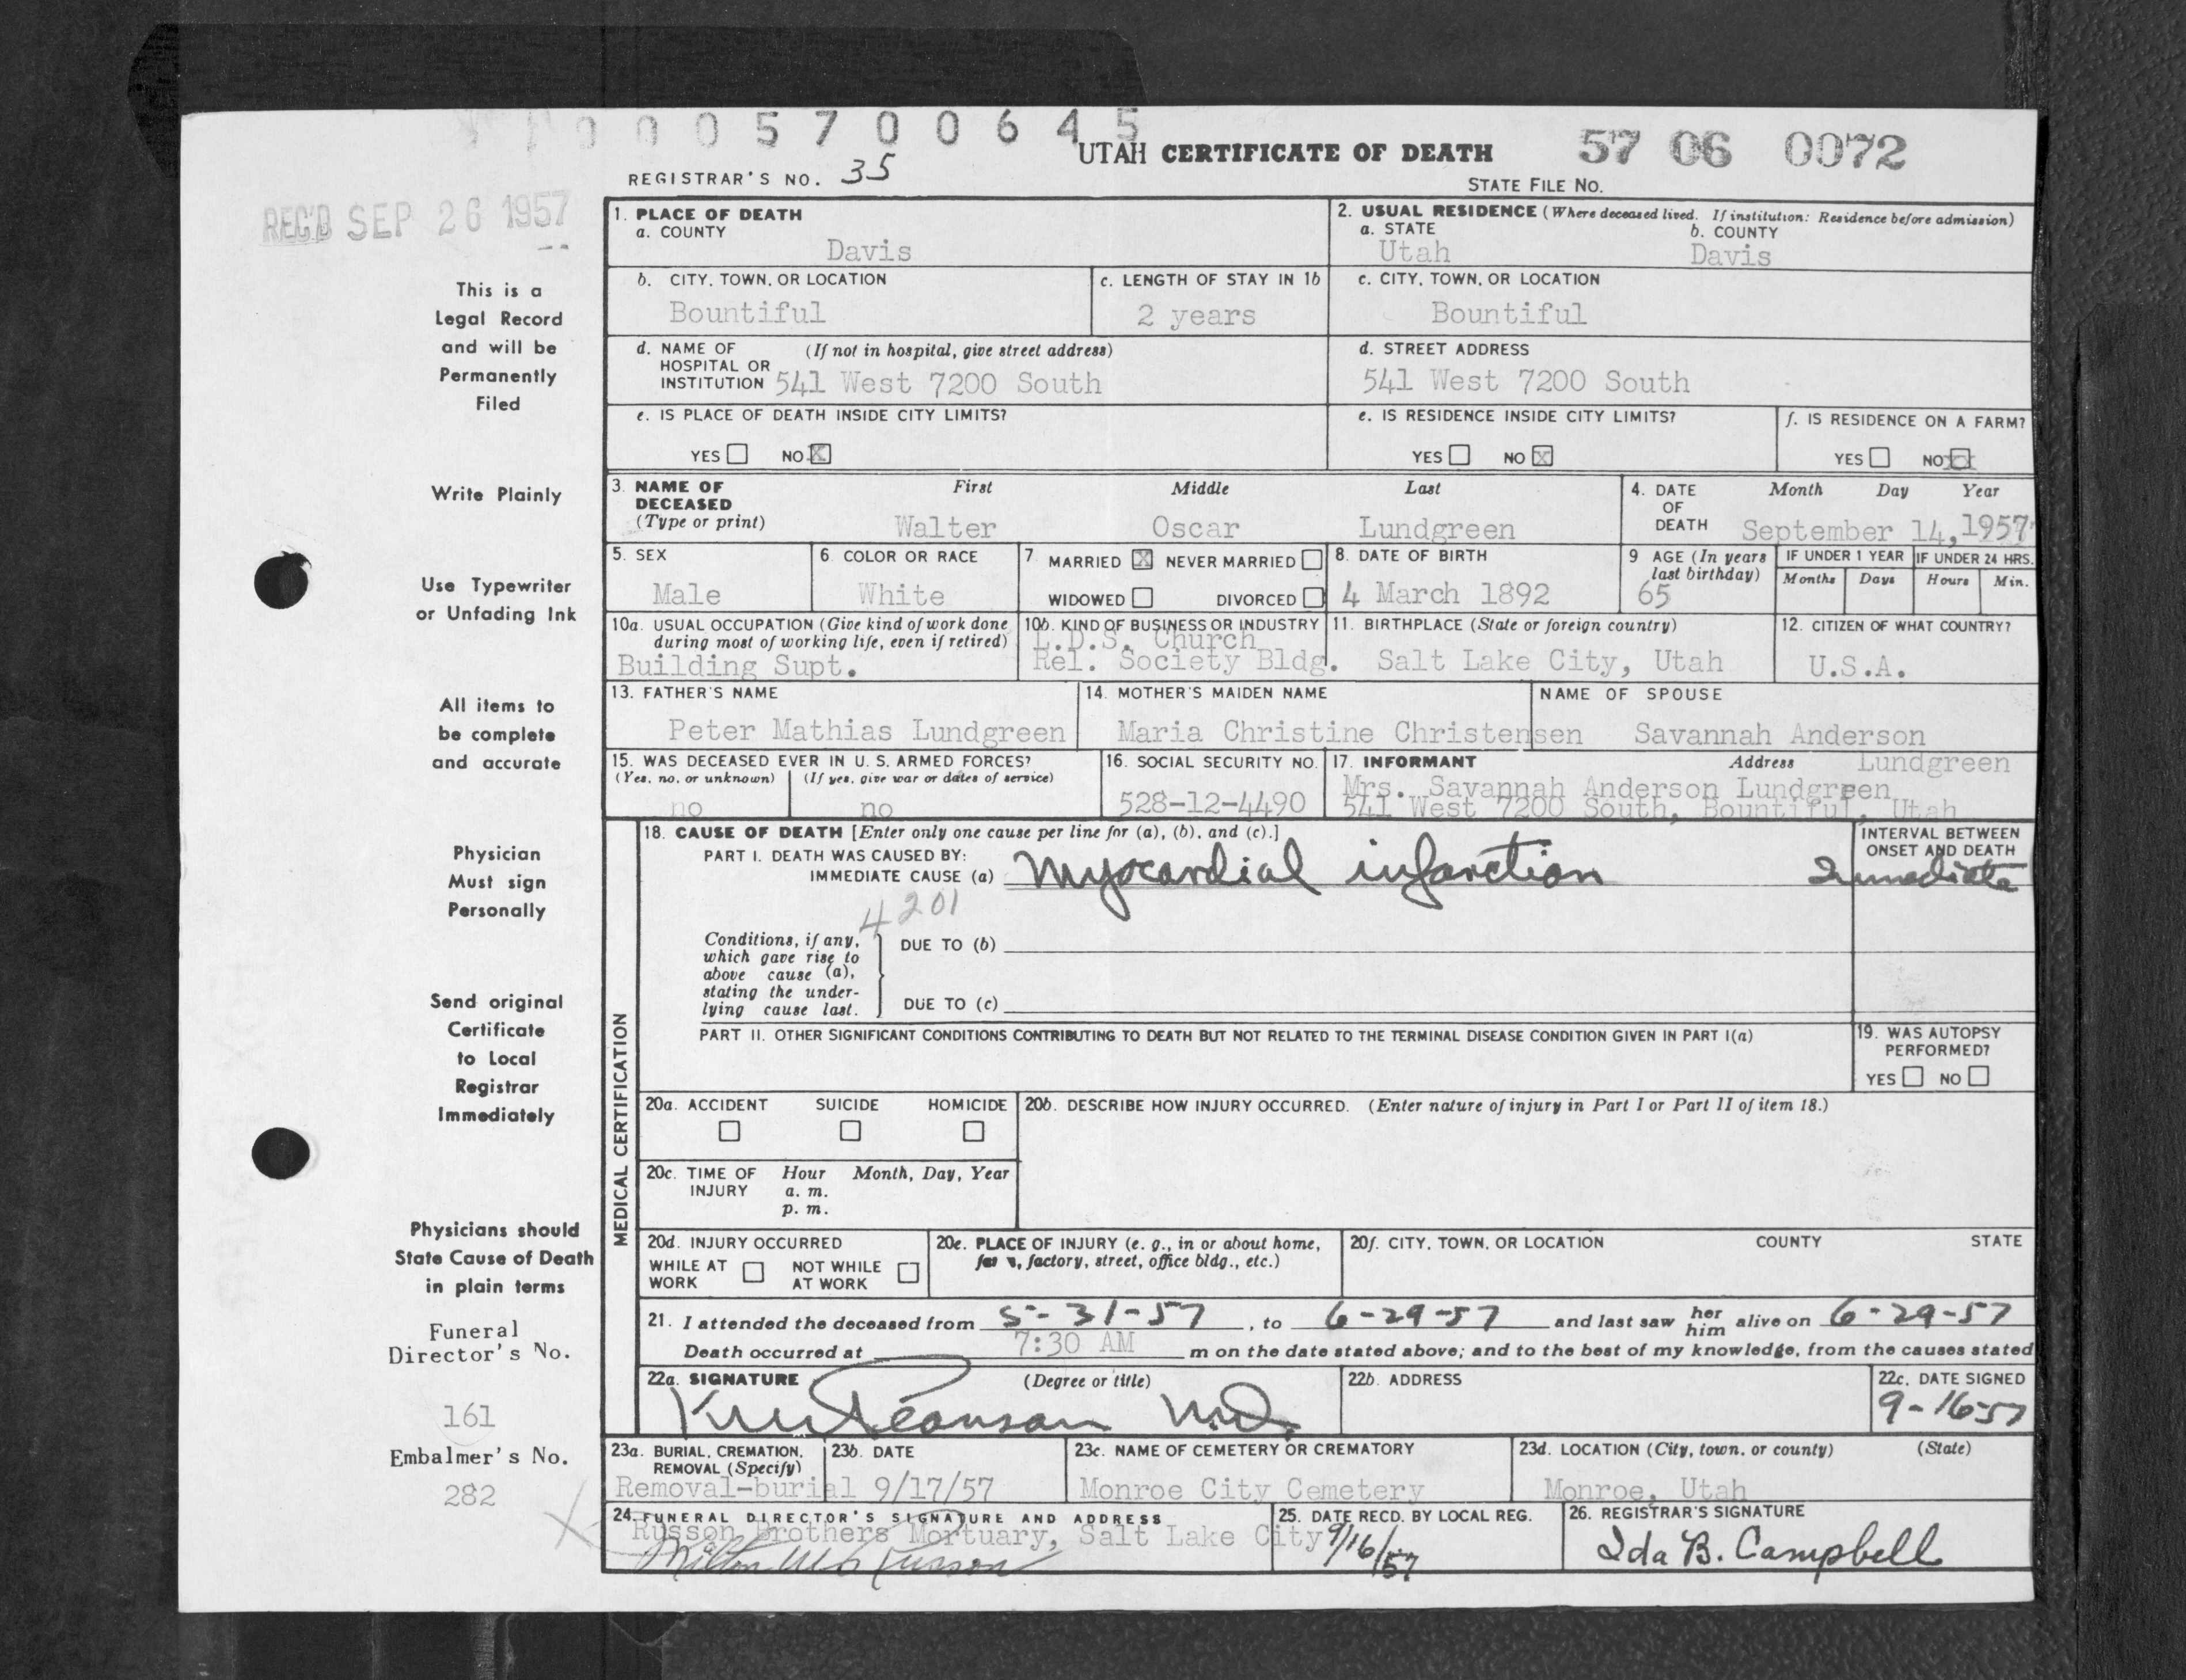 0 0 0 5 7 0 0 6 4 5
UTAH CERTIFICATE OF DEATH
57 06 0072
REGISTRAR'S NO. 35
STATE FILE NO.
REC'D SEP 26 1957
This is a
Legal Record
and will be
Permanently
Filed
Write Plainly
Use Typewriter
or Unfading Ink
All items to
be complete
and accurate
Physician
Must sign
Personally
Send original
Certificate
to Local
Registrar
Immediately
Physicians should
State Cause of Death
in plain terms
Funeral
Director's No.
161
Embalmer's No.
282
1. PLACE OF DEATH
a. COUNTY
Davis
2. USUAL RESIDENCE (Where deceased lived. If institution: Residence before admission)
a. STATE b. COUNTY
Utah Davis
b. CITY, TOWN, OR LOCATION
Bountiful
c. LENGTH OF STAY IN 1b
2 years
c. CITY, TOWN, OR LOCATION
Bountiful
d. NAME OF (If not in hospital, give street address)
HOSPITAL OR
INSTITUTION 541 West 7200 South
d. STREET ADDRESS
541 West 7200 South
e. IS PLACE OF DEATH INSIDE CITY LIMITS?
YES NO X
e. IS RESIDENCE INSIDE CITY LIMITS?
YES NO X
f. IS RESIDENCE ON A FARM?
YES NO XX
3. NAME OF First Middle Last
DECEASED
(Type or print) Walter Oscar Lundgreen
4. DATE Month Day Year
OF
DEATH September 14, 1957
5. SEX
Male
6. COLOR OR RACE
White
7. MARRIED X NEVER MARRIED
WIDOWED DIVORCED
8. DATE OF BIRTH
4 March 1892
9 AGE (In years
last birthday)
65
IF UNDER 1 YEAR IF UNDER 24 HRS.
Months Days Hours Min.
10a. USUAL OCCUPATION (Give kind of work done
during most of working life, even if retired)
Building Supt.
10b. KIND OF BUSINESS OR INDUSTRY
L.D.S. Church
Rel. Society Bldg.
11. BIRTHPLACE (State or foreign country)
Salt Lake City, Utah
12. CITIZEN OF WHAT COUNTRY?
U.S.A.
13. FATHER'S NAME
Peter Mathias Lundgreen
14. MOTHER'S MAIDEN NAME
Maria Christine Christensen
NAME OF SPOUSE
Savannah Anderson
Lundgreen
15. WAS DECEASED EVER IN U. S. ARMED FORCES?
(Yes, no, or unknown) (If yes, give war or dates of service)
no no
16. SOCIAL SECURITY NO.
528-12-4490
17. INFORMANT Address
Mrs. Savannah Anderson Lundgreen
541 West 7200 South, Bountiful, Utah
MEDICAL CERTIFICATION
18. CAUSE OF DEATH [Enter only one cause per line for (a), (b), and (c).]
PART I. DEATH WAS CAUSED BY:
IMMEDIATE CAUSE (a) Myocardial infarction
INTERVAL BETWEEN
ONSET AND DEATH
Immediate
4201
Conditions, if any,
which gave rise to
above cause (a),
stating the under-
lying cause last.
DUE TO (b)
DUE TO (c)
PART II. OTHER SIGNIFICANT CONDITIONS CONTRIBUTING TO DEATH BUT NOT RELATED TO THE TERMINAL DISEASE CONDITION GIVEN IN PART I(a)
19. WAS AUTOPSY
PERFORMED?
YES NO
20a. ACCIDENT SUICIDE HOMICIDE
20b. DESCRIBE HOW INJURY OCCURRED. (Enter nature of injury in Part I or Part II of item 18.)
20c. TIME OF Hour Month, Day, Year
INJURY a. m.
p. m.
20d. INJURY OCCURRED
WHILE AT NOT WHILE
WORK AT WORK
20e. PLACE OF INJURY (e. g., in or about home,
factory, street, office bldg., etc.)
20f. CITY, TOWN, OR LOCATION COUNTY STATE
21. I attended the deceased from 5-31-57, to 6-29-57 and last saw her him alive on 6-29-57
Death occurred at 7:30 AM m on the date stated above; and to the best of my knowledge, from the causes stated
22a. SIGNATURE (Degree or title)
M.D.
22b. ADDRESS
22c. DATE SIGNED
9-16-57
23a. BURIAL, CREMATION,
REMOVAL (Specify)
Removal-burial
23b. DATE
9/17/57
23c. NAME OF CEMETERY OR CREMATORY
Monroe City Cemetery
23d. LOCATION (City, town, or county) (State)
Monroe, Utah
24. FUNERAL DIRECTOR'S SIGNATURE AND ADDRESS
Russon Brothers Mortuary, Salt Lake City
25. DATE RECD. BY LOCAL REG.
9/16/57
26. REGISTRAR'S SIGNATURE
Ida B. Campbell